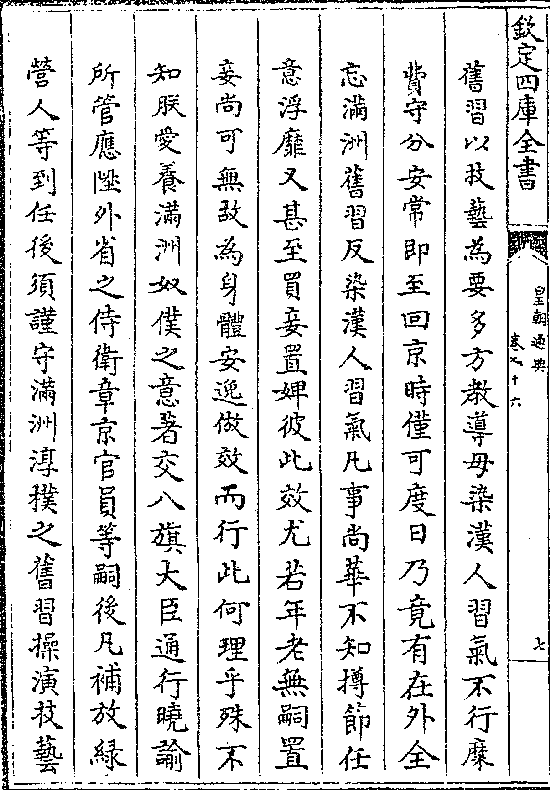 欽定四庫全書
皇朝通典
卷七十六
七
舊習以技藝為要多方教導毋染漢人習氣不行糜
費守分安常即至回京時僅可度日乃竟有在外全
忘滿洲舊習反染漢人習氣凡事尚華不知撙節任
意浮靡又甚至買妾置婢彼此效尤若年老無嗣置
妾尚可無故為身體安逸倣效而行此何理乎殊不
知朕愛養滿洲奴僕之意著交八旗大臣通行曉諭
所管應陞外省之侍衛章京官員等嗣後凡補放緑
營人等到任後須謹守滿洲淳樸之舊習操演技藝